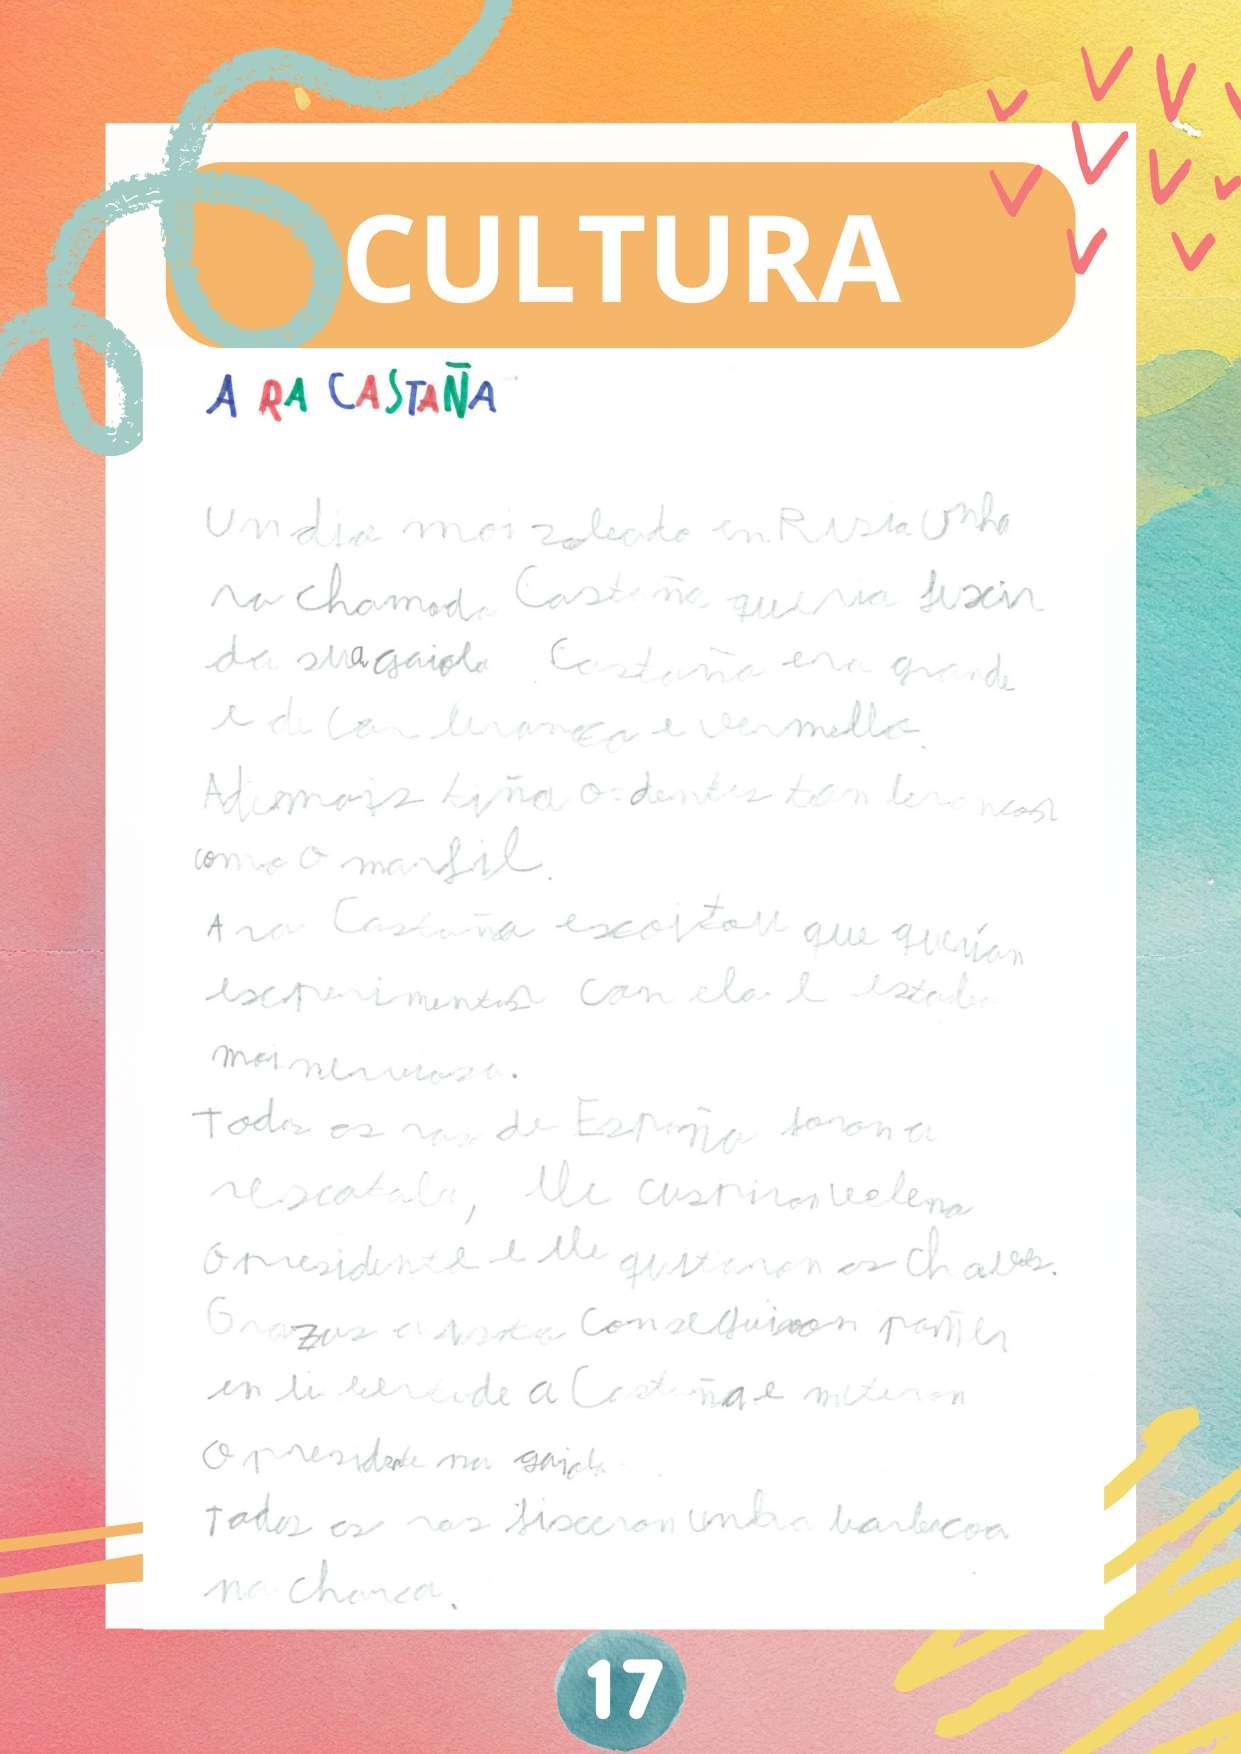 CULTURA
A RA CASTAÑA
Un dia moi soleado en Rusia Unha
ra chamada Castaña queria fuxir
da sua gaiola. Castaña era grande
e de cor branca e vermella.
Ademais tiña os dentes tan brancos
como o marfil.
A ra Castaña escoitou que querían
esperimentos con ela e estaba
moi nerviosa.
Todas as ras de España foron a
rescatala, lle cuspiron velena
o presidente e lle quitaron as chaves.
Grazas a isto conseguiron poñer
en libertade a Castaña e meteron
o presidente na gaiola.
Todas as ras fixeron unha barbacoa
na charca.
17